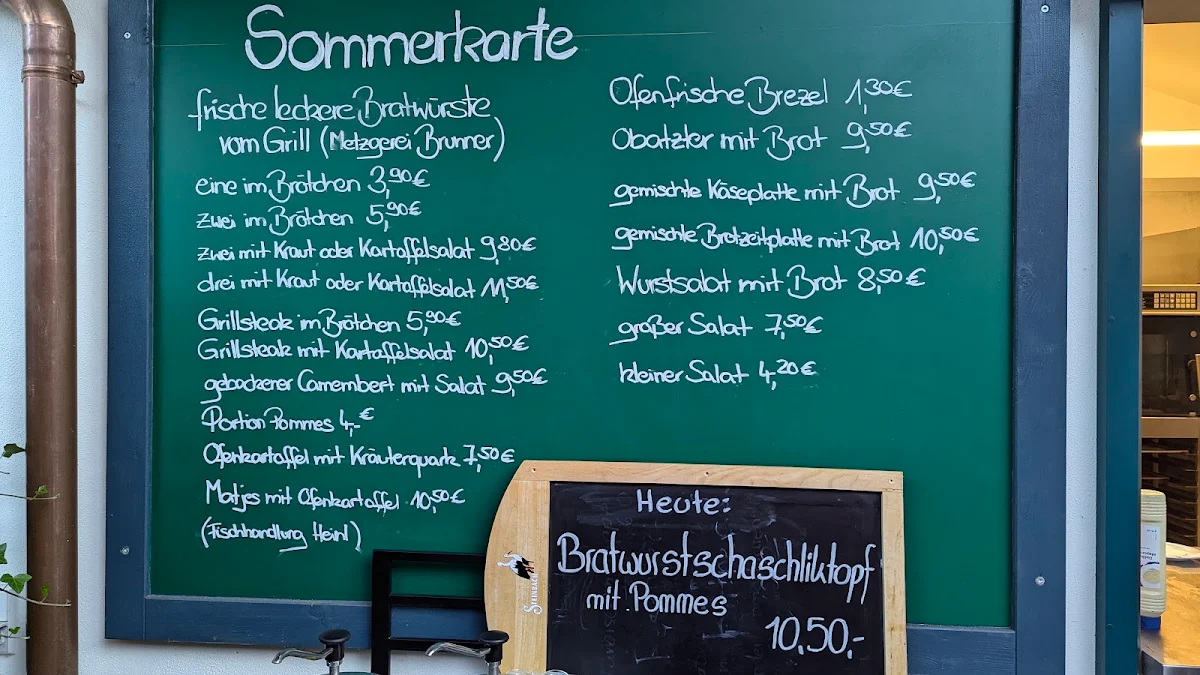 Sommerkarte
frische leckere Bratwürste
vom Grill (Metzgerei Brunner)
eine im Brötchen 3,90€
zwei im Brötchen 5,90€
zwei mit Kraut oder Kartoffelsalat 9,80€
drei mit Kraut oder Kartoffelsalat 11,50€
Grillsteak im Brötchen 5,90€
Grillsteak mit Kartoffelsalat 10,50€
gebackener Camembert mit Salat 9,50€
Portion Pommes 4,-€
Ofenkartoffel mit Kräuterquark 7,50€
Matjes mit Ofenkartoffel 10,50€
(Fischhandlung Heinl)
Ofenfrische Brezel 1,30€
Obatzter mit Brot 9,50€
gemischte Käseplatte mit Brot 9,50€
gemischte Brotzeitplatte mit Brot 10,50€
Wurstsalat mit Brot 8,50€
großer Salat 7,50€
kleiner Salat 4,20€
Heute:
Bratwurstschaschliktopf
mit Pommes
10,50,-
Steinbach